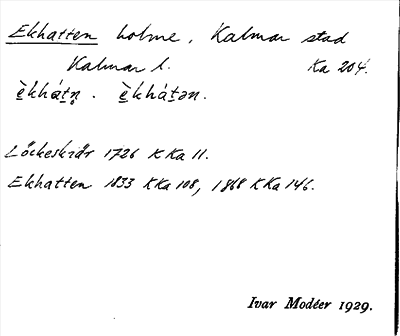 Ekhatten holme, Kalmar stad
Kalmar l. Ka 204.
è̱khát̠n̥. è̱khát̠ən.
Löckeskiär 1726 KKa 11.
Ekhatten 1833 KKa 108, 1868 KKa 146.
Ivar Modéer 1929.